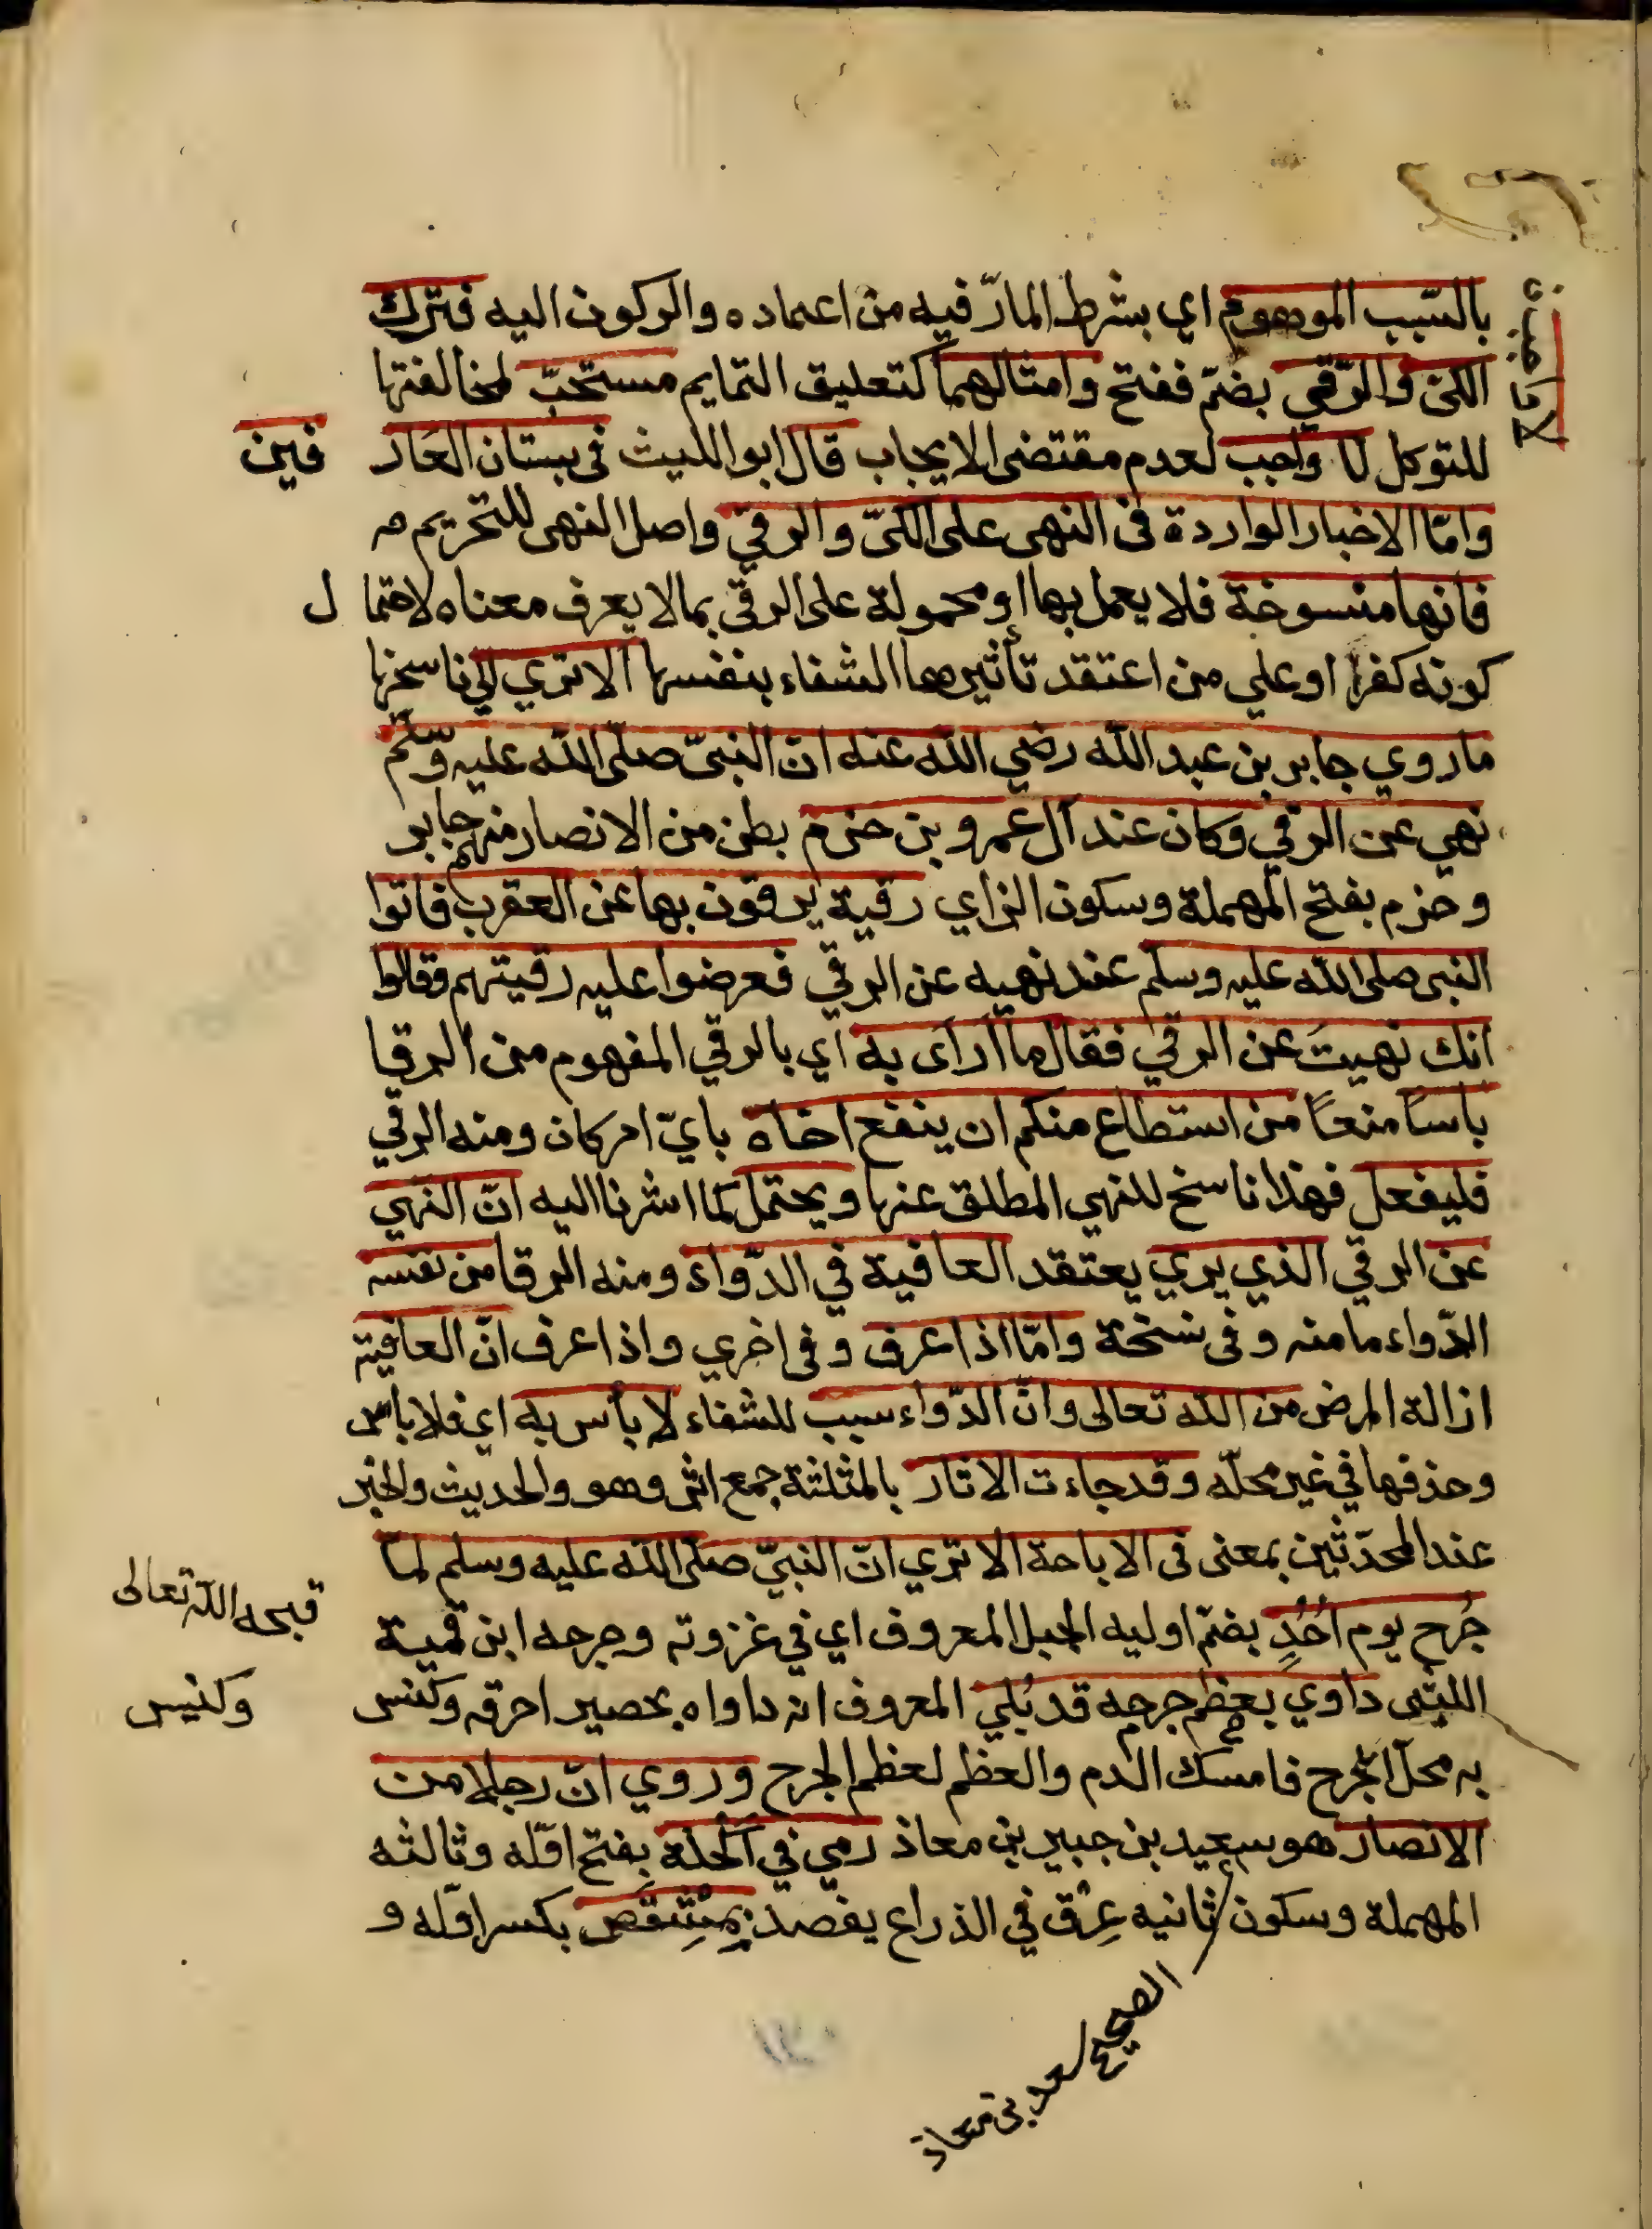 بالسّبب الموهوم اي بشرط المارّ فيه من اعتماده والركون اليه فترك
الكىّ والرّقي بضمّ ففتح وامثالهما كتعليق التمايم مستحبّ لمخالفتها
للتوكل لا واجب لعدم مقتضى الايجاب قال ابو الليث في بستان العَار فين
وامّا الاخبار الواردة في النهى على الكىّ والرقي واصل النهى للتحريم
فانها منسوخة فلا يعمل بها او محمولة على الرقى بما لا يعرف معناه لاحتما ل
كونه كفرا او علي من اعتقد تأثيرها الشفاء بنفسها الا تري الي ناسخها
ما روي جابر بن عبد الله رضي الله عنه ان النبىّ صلّى الله عليه وسّلم
نهي عن الرقي وكان عند آل عمرو بن حزم بطن من الانصار منهم جابر
وحزم بفتح المهملة وسكون الزاي رقية يرقون بها عن العقرب فاتوا
النبى صلى الله عليه وسلم عند نهيه عن الرقي فعرضوا عليه رقيتهم وقالوا
انك نهيتَ عن الرقي فقال ما أرَاى به اي بالرقي المفهوم من الرقا
باسًا منعًا من استطاع منكم ان ينفع اخاه بايّ امر كان ومنه الرقي
فليفعل فهذا ناسخ للنهي المطلق عنها ويحتمل كما اشرنا اليه انّ النّهي
عن الرقي الذي يري يعتقد العافية في الدّواء ومنه الرقا من نفسه
الدّواء ما منه وفى نسخة وامّا اذا عرف وفى اخري واذا عرف انّ العافية
ازالة المرض من الله تعالى وانّ الدّواء سبب للشفاء لا بأس به اي فلا باس
وحذفها في غير محلّه وقد جاءت الاثار بالمثلثة جمع اثر وهو والحديث والخبر
عند المحدّثين بمعنى في الاباحة الا تري انّ النبيّ صلّى الله عليه وسلم لمّا
جُرح يوم اُحُدٍ بضمّ اوليه الجبل المعروف اي في غزوته وجرحه ابن قمية
قبحه الله تعالى
الليثى داوي بعظم جرحه قد بُلي المعروف انه داواه بحصير احرقه وكنس
وكنيس
به محلّ الجرح فامسك الدم والعظم لعظم الجرح وروي انّ رجلا من
الانصار هو سعيد بن جبير بن معاذ رمي في اكْحَلَة بفتح اوّله وثالثه
المهملة وسكون ثانيه عِرْق في الذراع يفصد بِمِشْقَصٍ بكسر اوّله و
الصحيح سعد بن معاذ